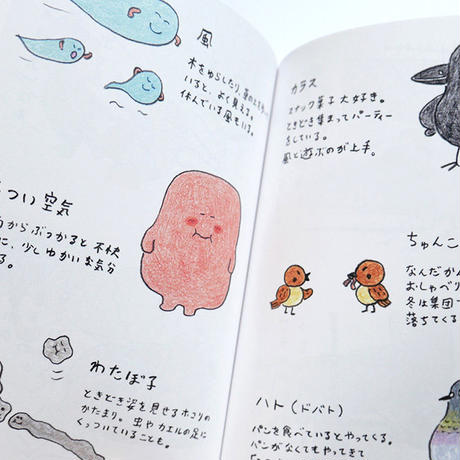 風
木をゆらしたり、
いると、よく見える。
休んでいる風もいる。
つい空気
からぶつかると不快
に、少しゆかいな気分
る。
わたぼ子
ときどき姿を見せるホコリの
かたまり。虫やカエルの足に
くっついていることも。
カラス
スナック菓子大好き。
ときどき集まってパーティー
をしている。
風と遊ぶのが上手。
ちゅんこ
なんだかん
おしゃべり
冬は集団
落ちてくる
ハト(ドバト)
パンを食べているとやってくる。
パンがなくてもやってきて